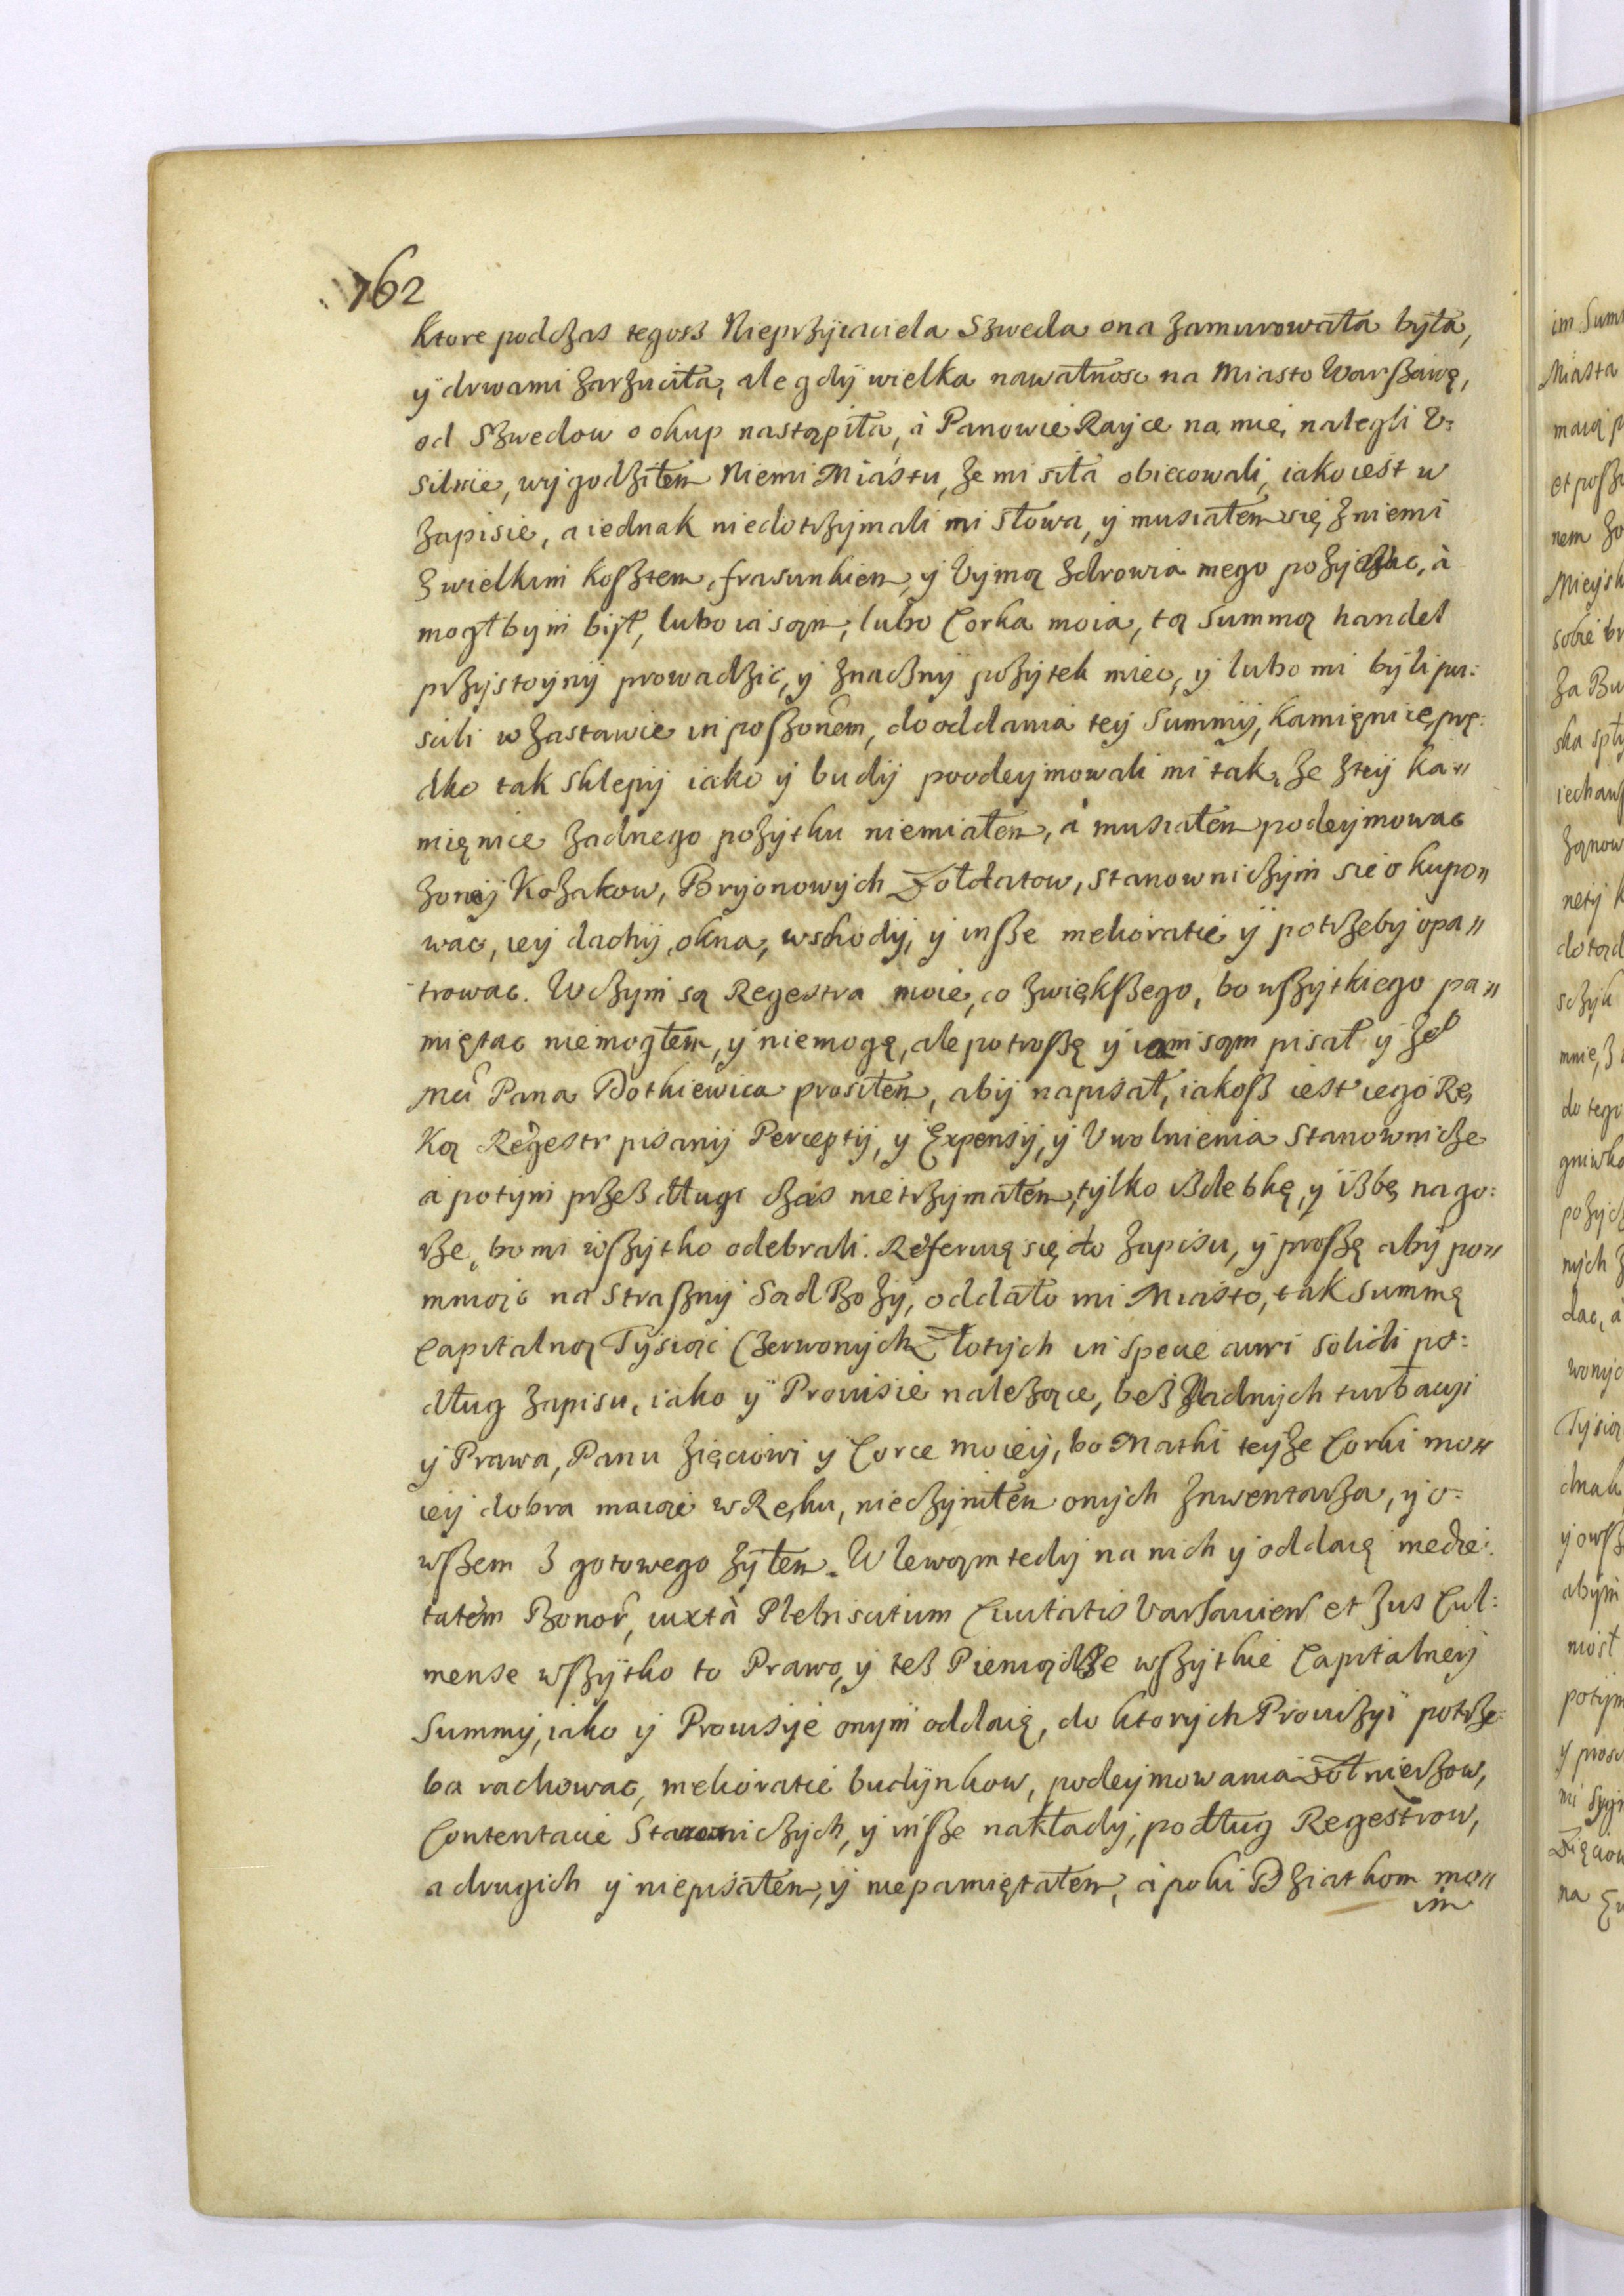 762
ktore podczas tegosz Nieprzÿiaciela Szweda ona zamurowała bÿła,
ÿ drwami zarzuciła, ale gdÿ wielka nawałnosc na Miasto Warszawę,
od Szwedow o okup nastąpiła, à Panowie Rayce na mię nalegli v=
silnie, wÿgodziłem Niemi Miastu, że mi siła obiecowali, iako iest w
zapisie, a iednak niedotrzÿmali mi słowa, ÿ musiałem się z niemi
z wielkim kosztem, frasunkiem, ÿ vÿmą zdrowia mego pożÿczac, à
mogłbÿm bÿł, lubo ia sąm, lubo Corka moia, tą Summą handel
przÿstoÿnÿ prowadzic, ÿ znacznÿ pożÿtek miec, ÿ lubo mi bÿli pu=
scili w zastawie in poszonem, do oddania teÿ Summÿ, kamięnicę, prę=
dko tak sklepÿ iako ÿ budÿ poodeÿmowali mi tak, że zteÿ ka"
mięnice żadnego pożÿtku niemiałem, à musiałem podeÿmowac
zoneÿ Kozakow, Brÿonowÿch Zołdatow, stanowniczÿm sie okupo"
wac, ieÿ dachÿ, okna, wschodÿ, ÿ insze melioratie ÿ potrzebÿ opa"
trowac. W czÿm są Regestra moie, co zwiększego, bo wszÿtkiego pa"
miętac niemogłem, ÿ niemogę, ale potroszę ÿ iam sąm pisał ÿ Ze
mû Pana Bothiewica prosiłem, abÿ napisał, iakosz iest iego Rę
Ką Regestr pisanÿ Perceptÿ, ÿ Expensÿ, ÿ Vwolnienia Stanownicze
a potÿm przez długi czas nie trzÿmałem, tÿlko izdebkę, ÿ izbę na go=
rze, bo mi wszÿtko odebrali. Referuię się do zapisu, ÿ proszę abÿ po"
mniąc na strasznÿ Sąd Bozÿ, oddało mi Miasto, tak summę
Capitalną Tÿsiąc Czerwonÿch Złotÿch in specie auri solidi po=
dług zapisu, iako ÿ Prouisie należące, bez żadnÿch turbacÿi
ÿ Prawa, Panu Zięciowi ÿ Corce moieÿ, bo Matki teÿże Corki mo"
ieÿ dobra maiąc w Ręku, nieczÿniłem onÿch Inwentarza, ÿ o=
wszem z gotowego zÿłem. Wlewąm tedÿ na nich ÿ oddaię medie=
tatem Bonor, iuxtà Plebiscitum Ciuitatis Varsauien et Jus Cul=
mense wszÿtko to Prawo, ÿ tesz Pieniądze wszÿtkie Capitalneÿ
Summÿ, iako ÿ Prouisÿe onÿm oddaię, do ktorÿch Prouizÿi potrze=
ba rachowac, melioratie budÿnkow, podeÿmowania Zołnierzow,
Contentacie Stanowniczÿch, ÿ insze nakładÿ, podług Regestrow,
a drugich ÿ niepisałem, ÿ niepamiętałem, à poki Dziatkom mo"
im